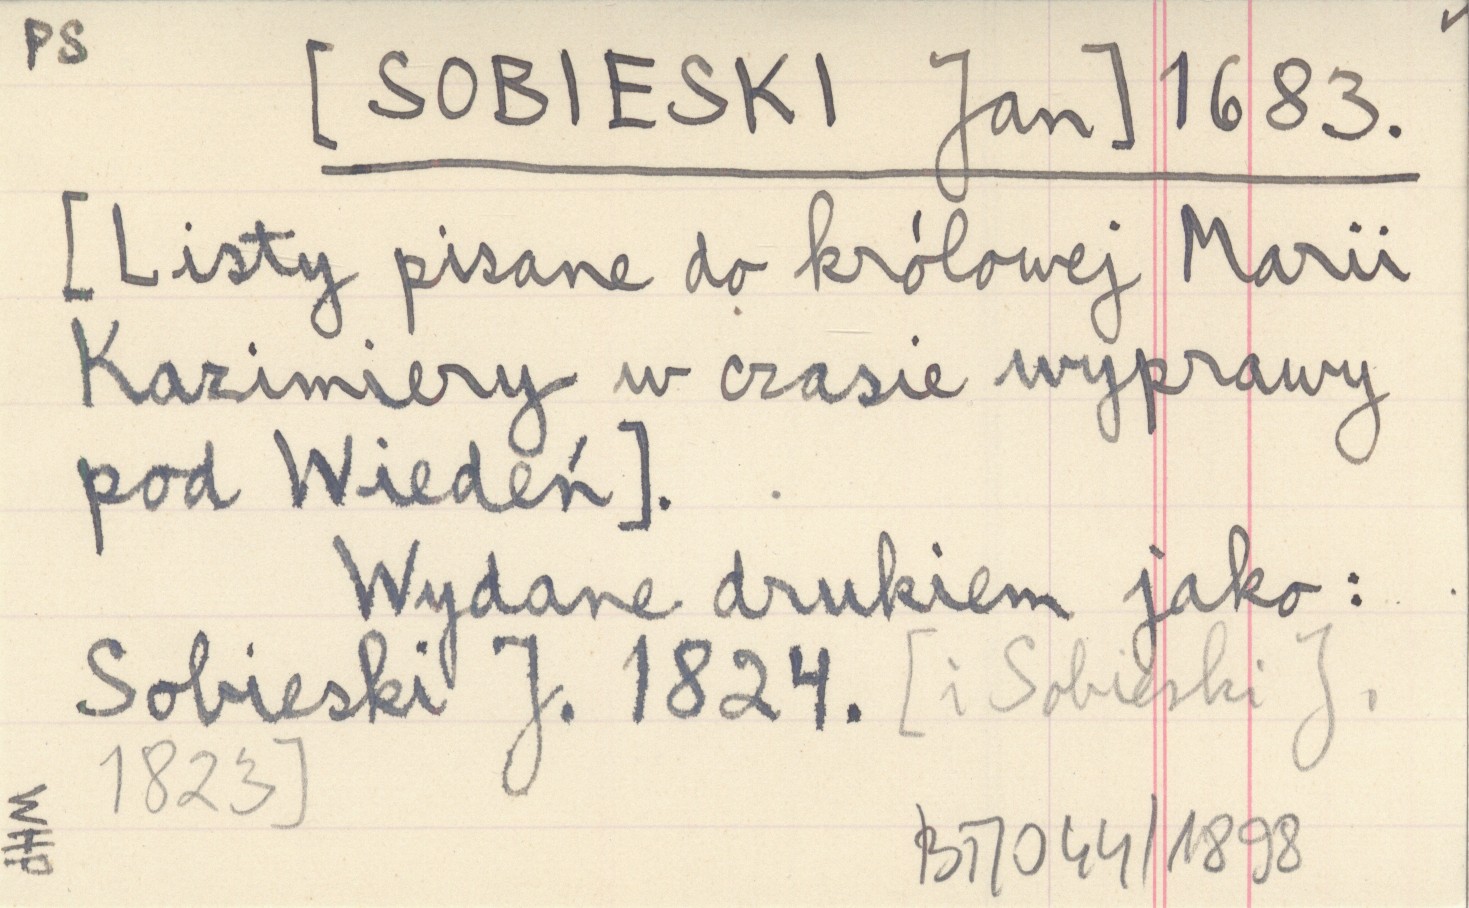 PS
[SOBIESKI Jan] 1683.
[Listy pisane do królowej Marii
Kazimiery w czasie wyprawy
pod Wiedeń].
Wydane drukiem jako:
Sobieski J. 1824. [i Sobieski J.
1823]
WHP
044/1898